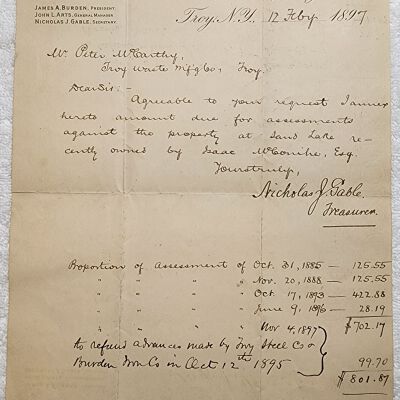 JAMES A. BURDEN, PRESIDENT
JOHN L. ARTS, GENERAL MANAGER
NICHOLAS J. GABLE, SECRETARY.
Troy, N.Y. 12 Feby 1897
Mr Peter McCarthy,
Troy Waste M'f'g Co, Troy.
Dear Sir: -
Agreeable to your request I annex
hereto amount due for assessments
against the property at Sand Lake re-
cently owned by Isaac McConihe, Esq.
Yours truly,
Nicholas J. Gable.
Treasurer.
Proportion of Assessment of Oct. 31, 1885 — 125.55
" " " " Nov. 20, 1888 — 125.55
" " " " Oct. 17, 1893 — 422.88
" " " " June 9, 1896 — 28.19
" " " " Nov 4, 1897 $702.17
to refund advances made by Troy Steel Co &
Burden Iron Co in Oct 12th 1895 99.70
$801.87